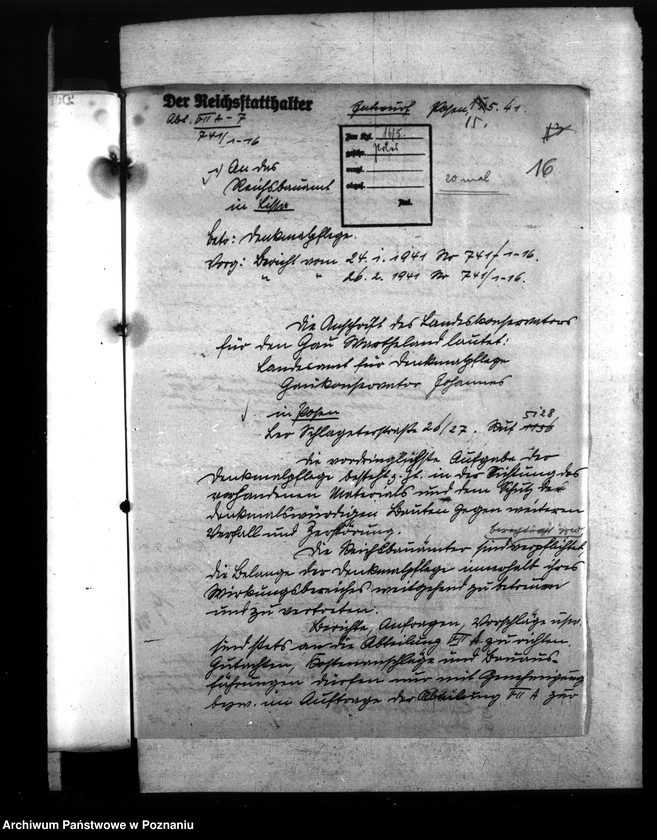 Der Reichsstatthalter
Entwurf Posen, 5. 41.
15.
Abt. VII A - 7
741/1-16
16
1) An das
Reichsbauamt
in Lissa
Zur Kzl. 16/5.
20 mal
betr: Denkmalpflege.
Vorg: Bericht vom 24. 1. 1941 Nr 741/1-16.
" " 26. 2. 1941 Nr 741/1-16.
Die Anschrift des Landeskonservators
für den Gau Wartheland lautet:
Landesamt für Denkmalpflege
Gaukonservator Johannes
in Posen
Leo Schlageterstraße 26/27. Ruf 5128
Die vordringlichste Aufgabe der
Denkmalpflege besteht z. Zt. in der Sichtung des
vorhandenen Materials und dem Schutz der
denkmalswürdigen Bauten gegen weiteren
Verfall und Zerstörung.
berechtigt und
Die Reichsbauämter sind verpflichtet,
die Belange der Denkmalpflege innerhalb ihres
Wirkungsbereiches weitgehend zu betreuen
und zu vertreten.
Berichte, Anfragen, Vorschläge usw.
sind stets an die Abteilung VII A zu richten.
Gutachten, Kostenanschläge und Bauaus-
führungen dürfen nur mit Genehmigung
bezw. im Auftrage der Abteilung VII A zur
Archiwum Państwowe w Poznaniu